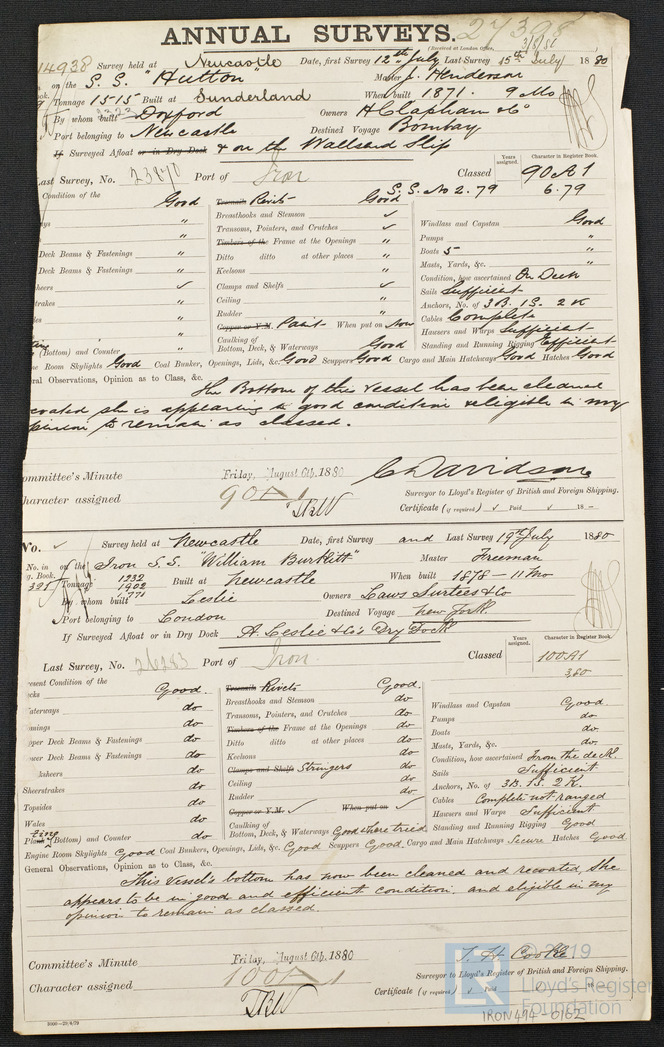 27398
ANNUAL SURVEYS.
(Received at London Office, 3/8/80)
14938 Survey held at Newcastle Date, first Survey 12th July Last Survey 15th July 1880
on the S.S. "Hutton" Master J. Henderson
Tonnage 1515 Built at Sunderland When built 1871. 9 Mo
By whom built Doxford Owners H Clapham & Co
Port belonging to Newcastle Destined Voyage Bombay
If Surveyed Afloat or in Dry Dock & on the Wallsend Slip
Years assigned. Character in Register Book.
Last Survey, No. 23870 Port of Iron Classed 90A1
S.S. No 2. 79 6.79
Condition of the Good Treenails Rivets Good
Breasthooks and Stemson ✓ Windlass and Capstan Good
Transoms, Pointers, and Crutches ✓ Pumps "
Timbers of the Frame at the Openings " Boats 5 "
Deck Beams & Fastenings " Ditto ditto at other places " Masts, Yards, &c. "
Deck Beams & Fastenings " Keelsons " Condition, how ascertained On Deck
Clamps and Shelfs ✓ Sails Sufficient
Ceiling " Anchors, No. of 3B. 1S. 2K
Rudder " Cables Complete
Copper or Y.M. Paint When put on Now Hawsers and Warps Sufficient
Caulking of Bottom, Deck, & Waterways Good Standing and Running Rigging Efficient
(Bottom) and Counter "
Room Skylights Good Coal Bunker, Openings, Lids, &c. Good Scuppers Good Cargo and Main Hatchways Good Hatches Good
General Observations, Opinion as to Class, &c.
The Bottom of this Vessel has been cleaned
coated she is appearing in good condition & eligible in my
opinion to remain as classed.
Committee's Minute Friday, August 6th, 1880 C Davidson
Character assigned 90A1 Surveyor to Lloyd's Register of British and Foreign Shipping.
Certificate (if required) Paid 18
No. ✓ Survey held at Newcastle Date, first Survey and Last Survey 19th July 1880
No. in on the Iron S.S. "William Burkitt" Master Freeman
Reg. Book. 395 Tonnage 1232 1902 1771 Built at Newcastle When built 1878 - 11 Mo
By whom built Leslie Owners Laws Surtees & Co
Port belonging to London Destined Voyage New York
If Surveyed Afloat or in Dry Dock A. Leslie & Co's Dry Dock
Years assigned. Character in Register Book.
Last Survey, No. 26283 Port of Iron Classed 100A1
3,80
Present Condition of the
Decks Good. Treenails Rivets Good.
Waterways do Breasthooks and Stemson do Windlass and Capstan Good.
do Transoms, Pointers, and Crutches do Pumps do
Upper Deck Beams & Fastenings do Timbers of the Frame at the Openings do Boats do
Lower Deck Beams & Fastenings do Ditto ditto at other places do Masts, Yards, &c. do
do Keelsons do Condition, how ascertained From the deck.
Sheerstrakes do Clamps and Shelfs Stringers do Sails Sufficient
Topsides do Ceiling do Anchors, No. of 3B. 1S. 2K.
Wales do Rudder do Cables Complete not ranged
Copper or Y.M. ✓ When put on ✓ Hawsers and Warps Sufficient
Plank (Bottom) and Counter do Caulking of Bottom, Deck, & Waterways Good where tried Standing and Running Rigging Good
Engine Room Skylights Good Coal Bunkers, Openings, Lids, &c. Good Scuppers Good Cargo and Main Hatchways Secure Hatches Good
General Observations, Opinion as to Class, &c.
This Vessel's bottom has now been cleaned and recoated, She
appears to be in good and efficient condition and eligible in my
opinion to remain as classed.
Committee's Minute Friday, August 6th, 1880 T. H. Cooke
Character assigned 100A1 Surveyor to Lloyd's Register of British and Foreign Shipping.
Certificate (if required) Paid
© 2019
Lloyd's Register
Foundation
IRON494-0162